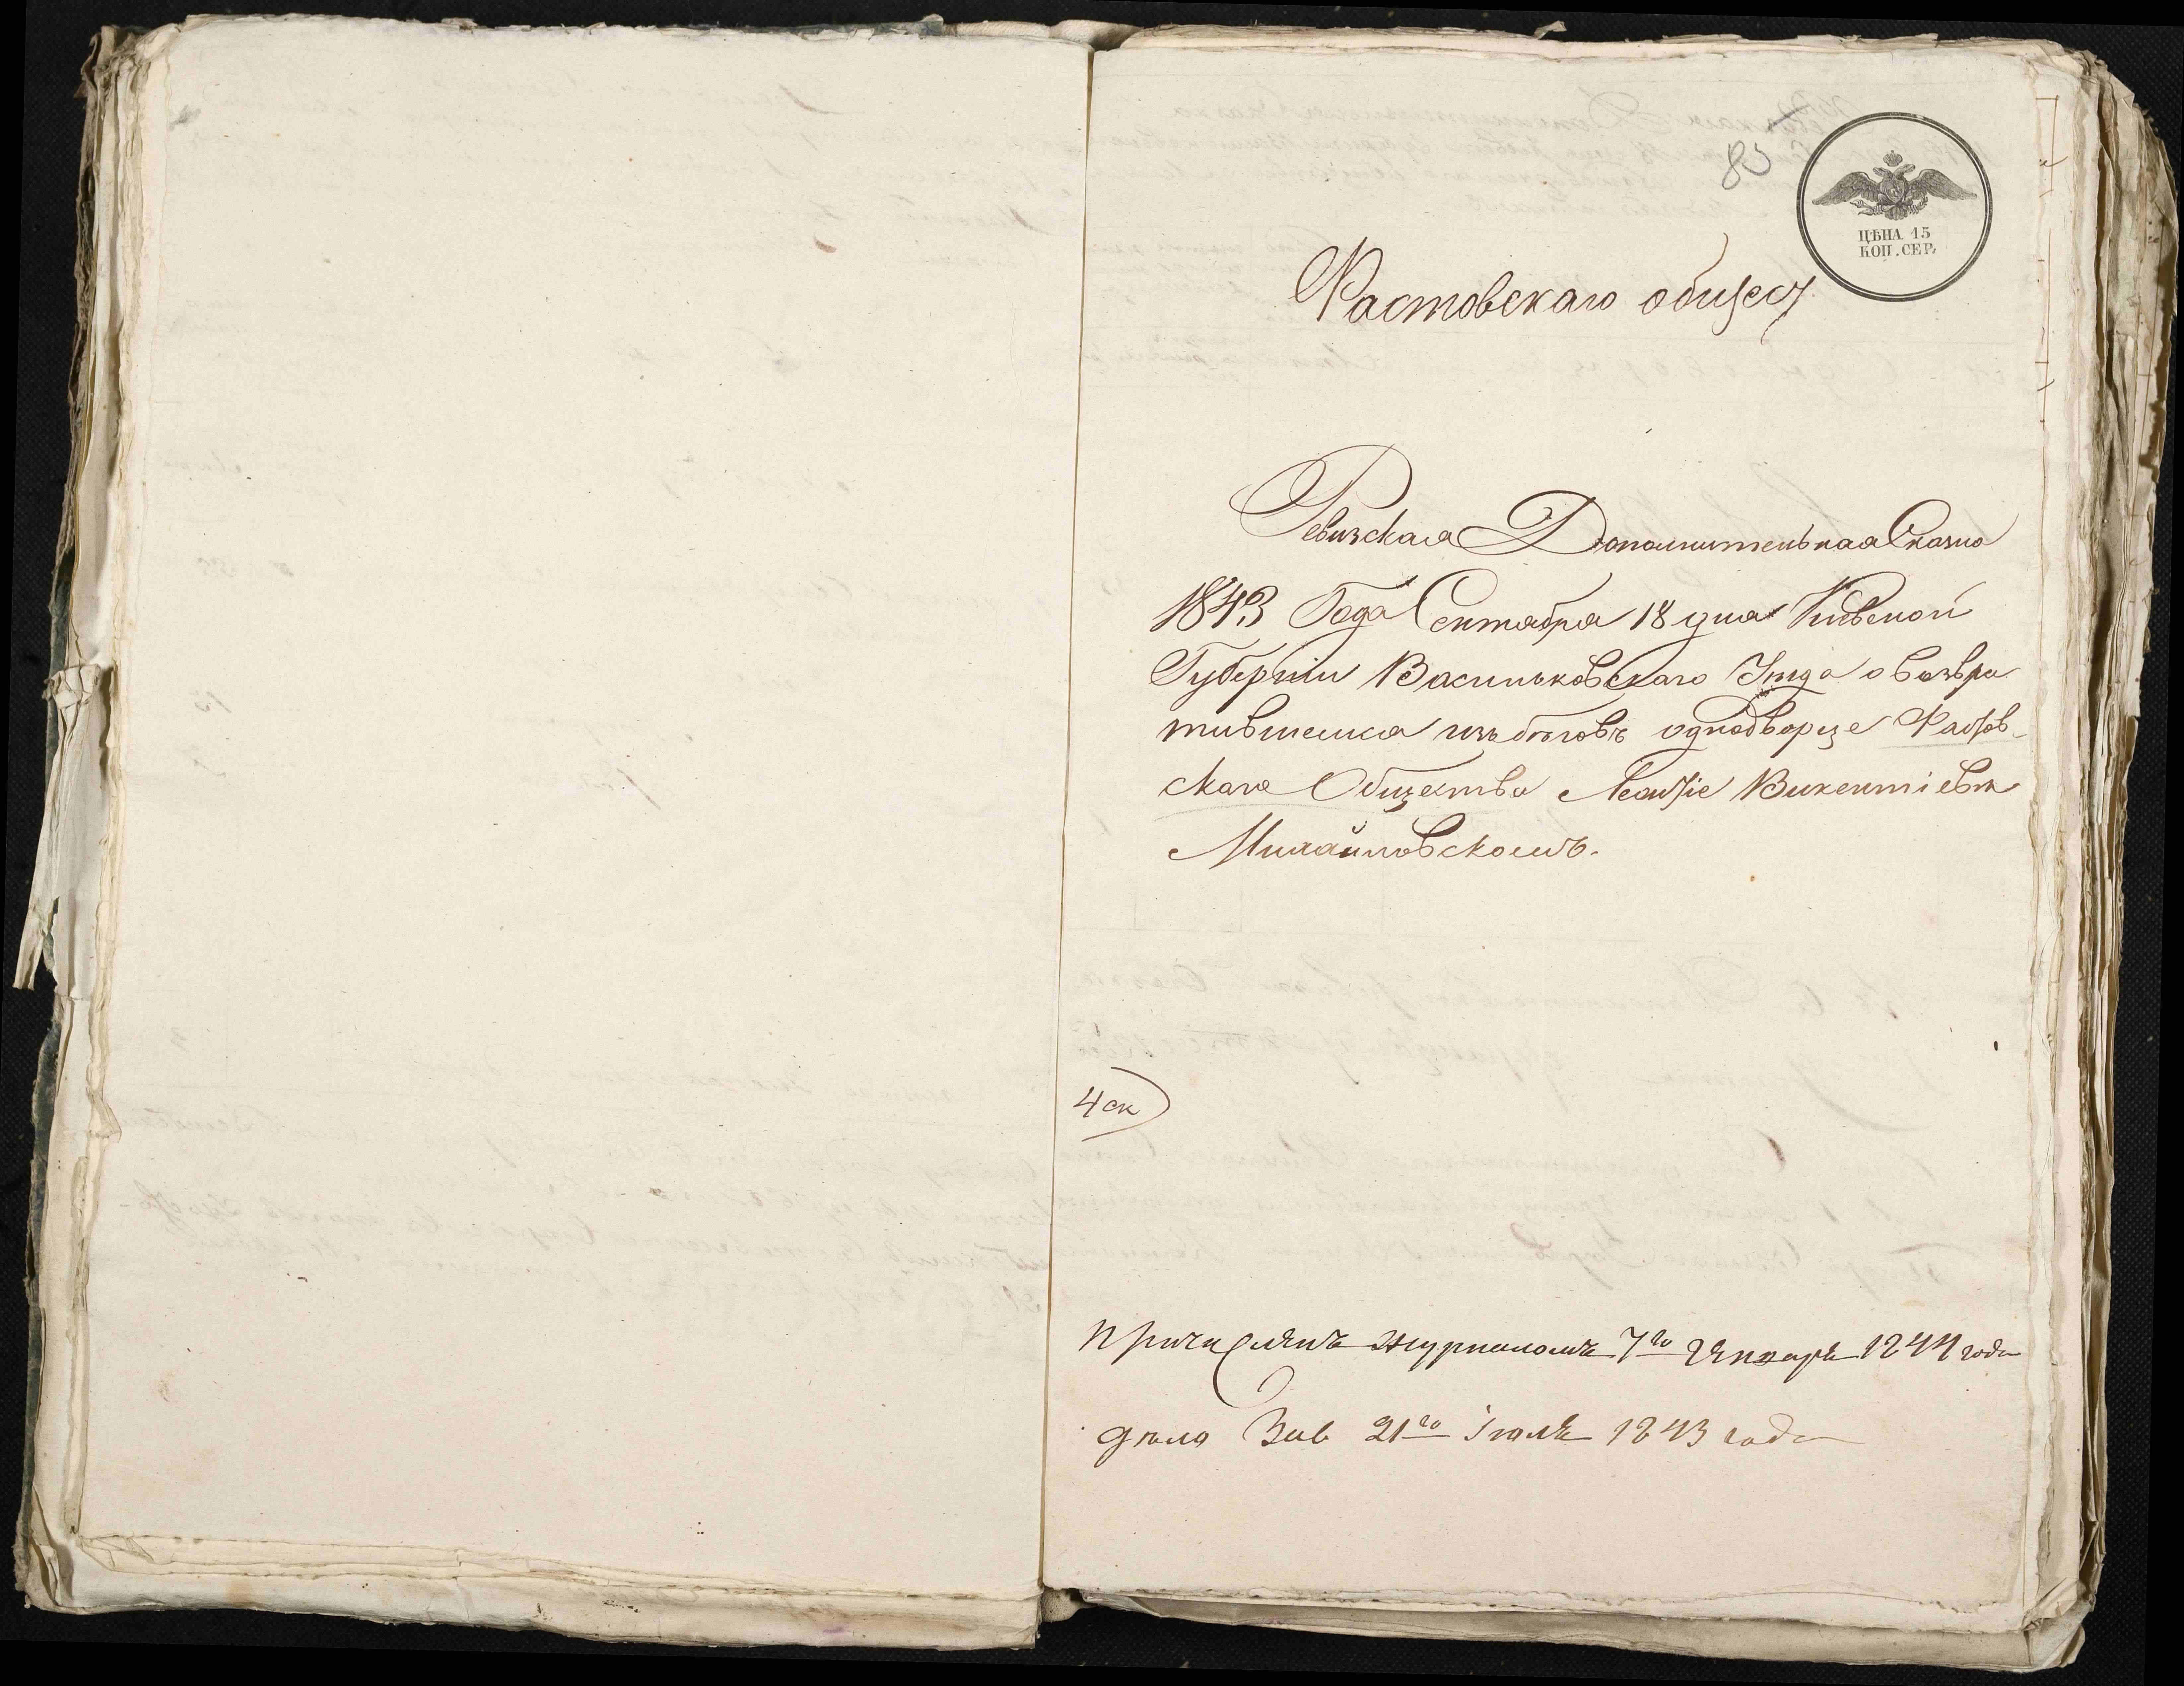 85
ЦѢНА 15
КОП. СЕР.
Фастовскаго общест
Ревизская Дополнительная Сказка
1843 Года Сентября 18 дня Кіевской
Губерніи Васильковскаго Уѣзда о возвра
тившемся изъ бѣговъ однодворце Фастов-
скаго Общества Леонтіе Викентіевѣ
Михайловскомъ.
4 ск
Причисленъ журналомъ 7го Января 1844 года
дѣла 21го Іюля 1843 года